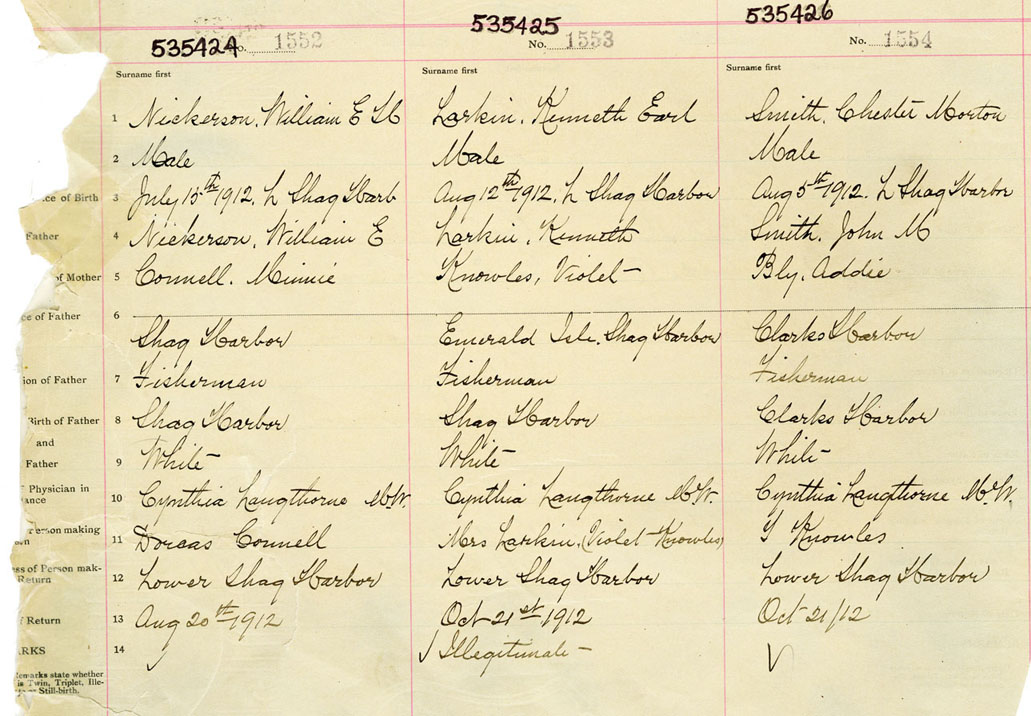 535424 535425 535426
No. 1552 No. 1553 No. 1554
Surname first Surname first Surname first
1 Nickerson, William E St C Larkin, Kenneth Earl Smith, Chester Morton
2 Male Male Male
ce of Birth 3 July 15th 1912. L Shag Harb Aug 12th 1912. L Shag Harbor Aug 5th 1912. L Shag Harbor
Father 4 Nickerson, William E Larkin, Kenneth Smith, John M
of Mother 5 Connell. Minnie Knowles, Violet Bly, Addie
ce of Father 6
Shag Harbor Emerald Isle. Shag Harbor Clarks Harbor
ion of Father 7 Fisherman Fisherman Fisherman
Birth of Father 8 Shag Harbor Shag Harbor Clarks Harbor
and
Father 9 White White White
Physician in
ance 10 Cynthia Langthorne M.W. Cynthia Langthorne M.W. Cynthia Langthorne M.W.
Person making
11 Dorcas Connell Mrs Larkin, (Violet Knowles) Knowles
ss of Person mak-
Return 12 Lower Shag Harbor Lower Shag Harbor Lower Shag Harbor
Return 13 Aug 20th 1912 Oct 21st 1912 Oct 21/12
ARKS 14 Illegitimate
Remarks state whether
is Twin, Triplet, Ille-
Still-birth.